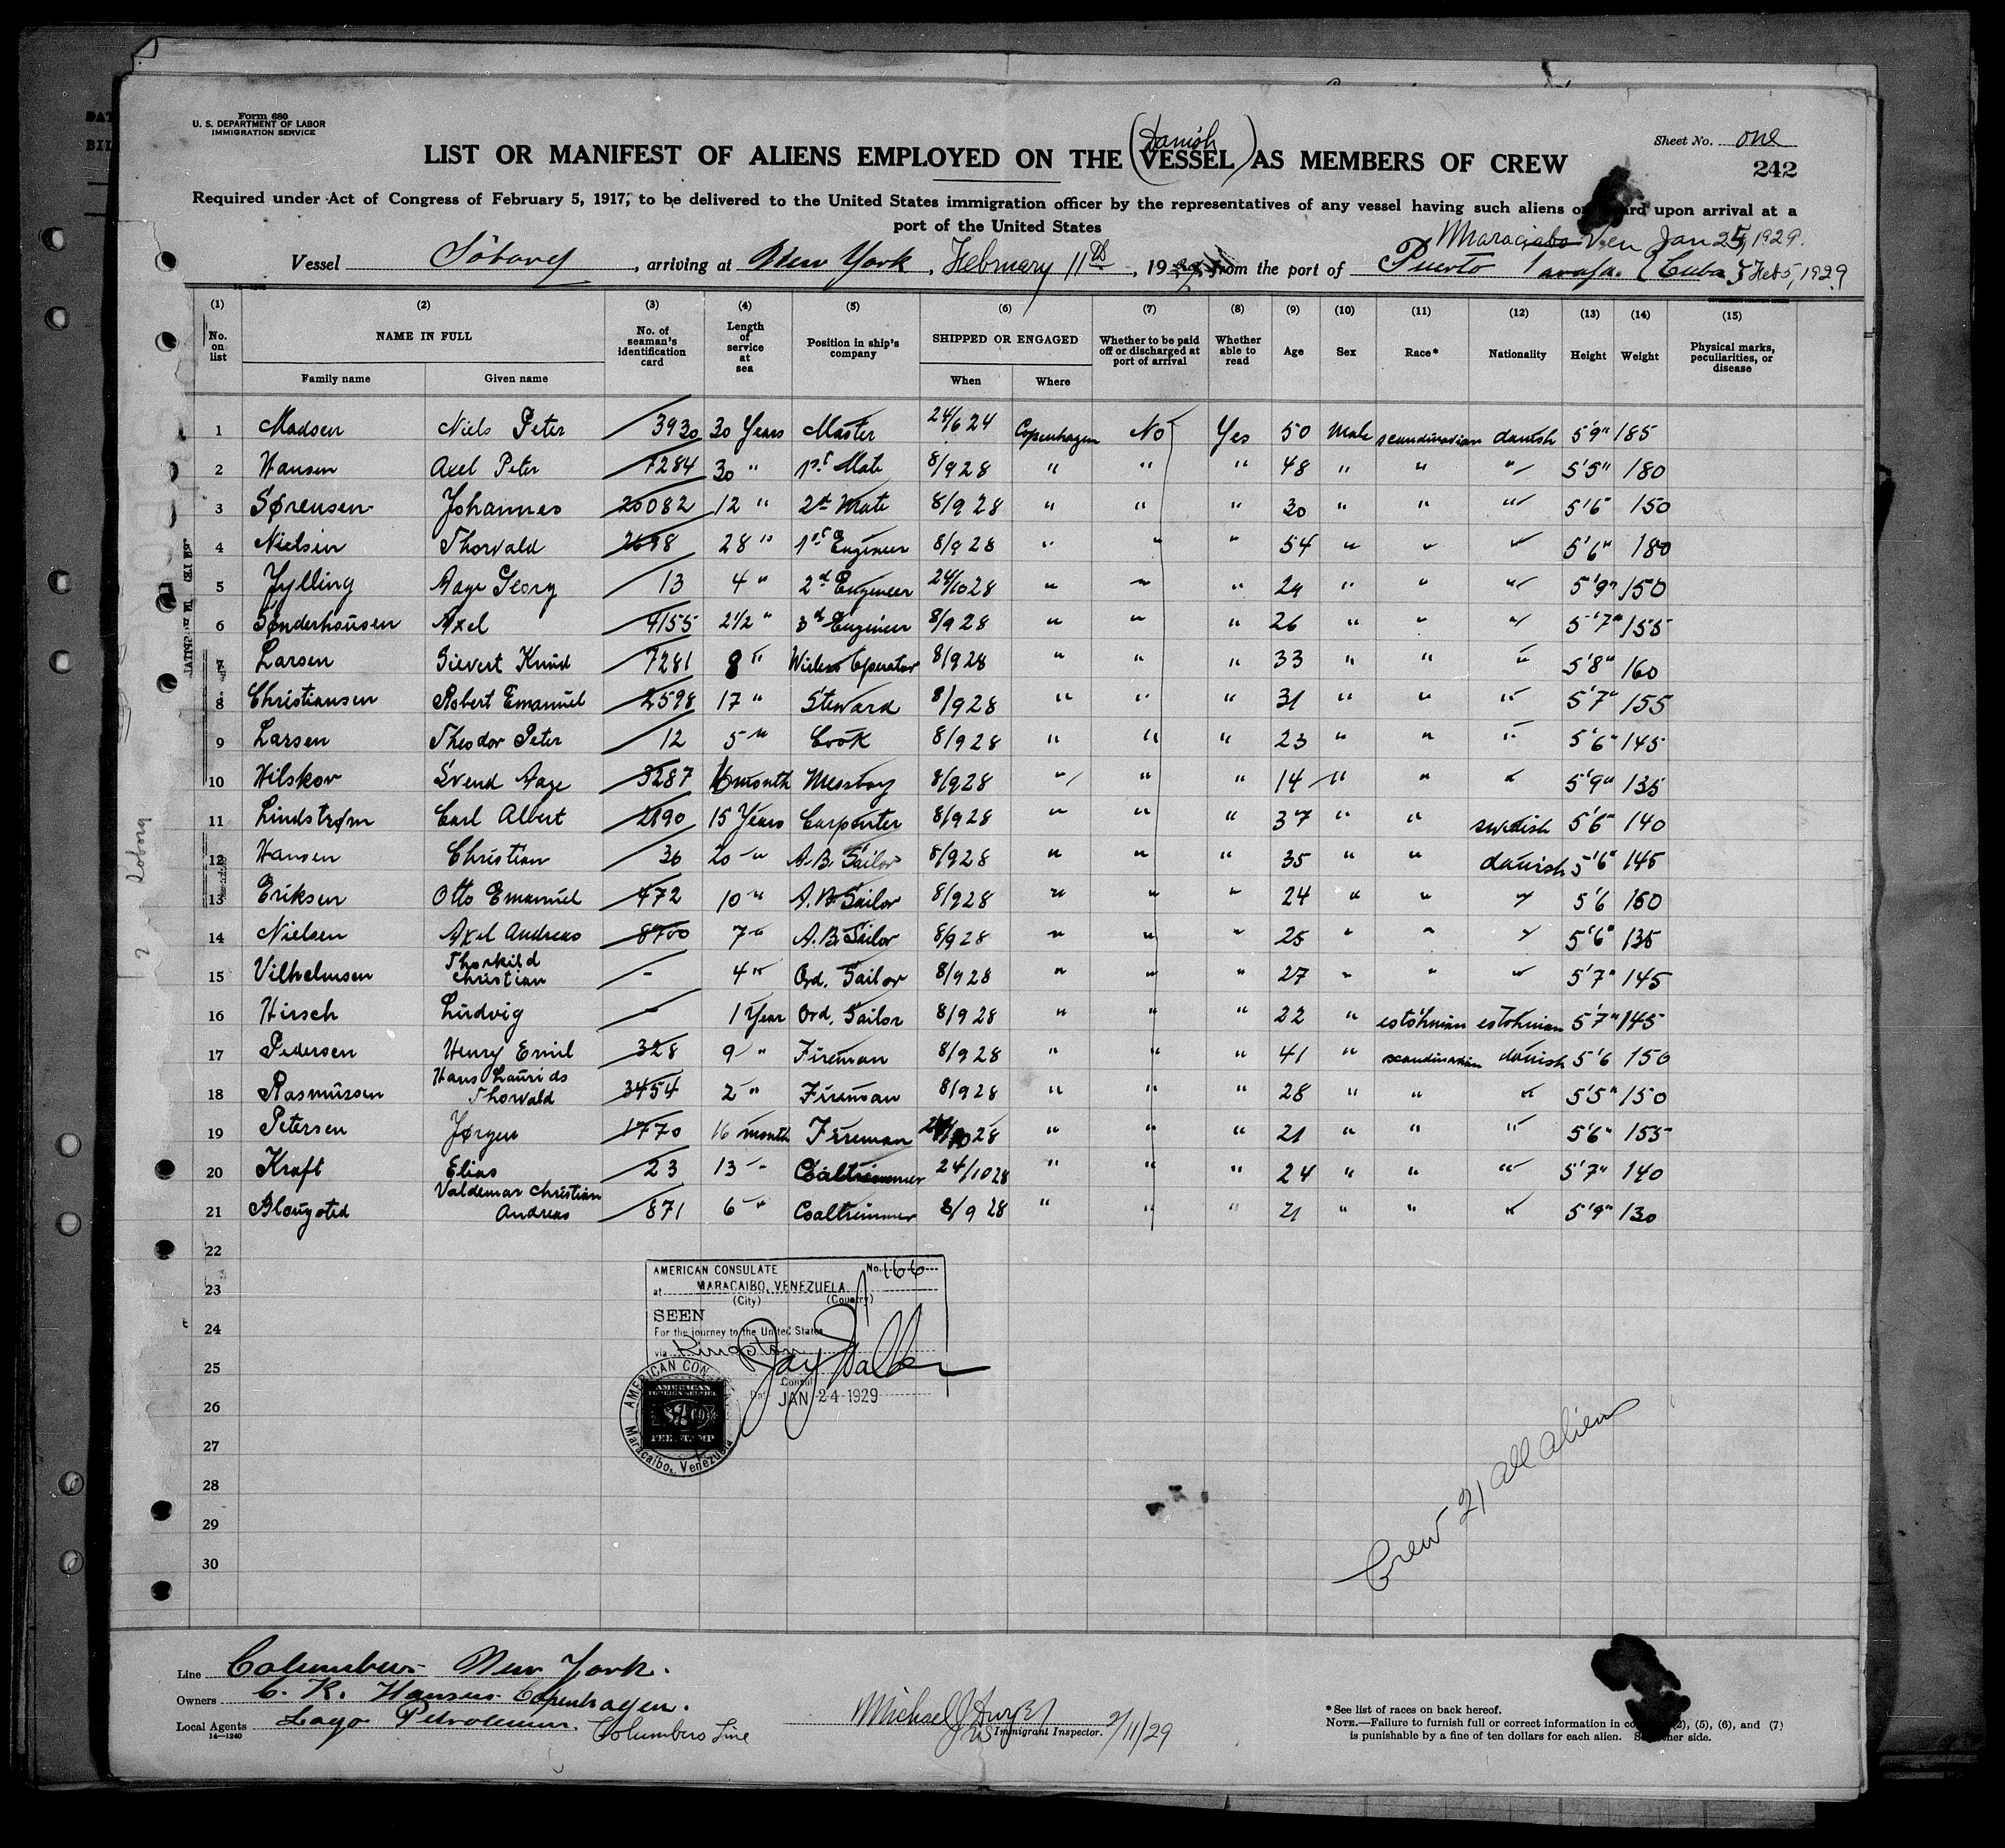 Form 680
U. S. DEPARTMENT OF LABOR
IMMIGRATION SERVICE
Sheet No. one
242
Danish
LIST OR MANIFEST OF ALIENS EMPLOYED ON THE (VESSEL) AS MEMBERS OF CREW
Required under Act of Congress of February 5, 1917, to be delivered to the United States immigration officer by the representatives of any vessel having such aliens on board upon arrival at a
port of the United States
Maracaibo Ven Jan 25, 1929.
Vessel , arriving at New York, February 11th, 19 from the port of Puerto (Cuba) Feb 5, 1929
(1) (2) (3) (4) (5) (6) (7) (8) (9) (10) (11) (12) (13) (14) (15)
No. on list NAME IN FULL Family name Given name No. of seaman's identification card Length of service at sea Position in ship's company SHIPPED OR ENGAGED When Where Whether to be paid off or discharged at port of arrival Whether able to read Age Sex Race* Nationality Height Weight Physical marks, peculiarities, or disease
1 Madsen Niels Peter 3930 30 Years Master 24/6 24 Copenhagen No Yes 50 Male scandinavian danish 5'9" 185
2 Hansen Axel Peter 7284 30 " 1st Mate 8/9 28 " " " 48 " " " 5'5" 180
3 Sørensen Johannes 20082 12 " 2d Mate 8/9 28 " " " 30 " " " 5'6 150
4 Nielsen Thorvald 2698 28 " 1st Engineer 8/9 28 " " " 54 " " " 5'6" 180
5 Jylling Aage Georg 13 4 " 2d Engineer 24/10 28 " " " 29 " " " 5'9" 150
6 Sønderhousen Axel 4155 2 1/2 " 3d Engineer 8/9 28 " " " 26 " " " 5'7" 155
7 Larsen Sievert Knud 7281 8 " Wireless Operator 8/9 28 " " " 33 " " " 5'8" 160
8 Christiansen Robert Emanuel 2598 17 " Steward 8/9 28 " " " 31 " " " 5'7" 155
9 Larsen Theodor Peter 12 5 " Cook 8/9 28 " " " 23 " " " 5'6" 145
10 Hilskov Svend Aage 3287 6 month Messboy 8/9 28 " " " 14 " " " 5'9" 135
11 Lindstrøm Carl Albert 2190 15 Years Carpenter 8/9 28 " " " 37 " " swedish 5'6" 140
12 Hansen Christian 36 20 " A.B. Sailor 8/9 28 " " " 35 " " danish 5'6" 145
13 Eriksen Otto Emanuel 472 10 " A.B. Sailor 8/9 28 " " " 24 " " " 5'6 160
14 Nielsen Axel Andreas 8700 7 " A.B. Sailor 8/9 28 " " " 25 " " " 5'6" 135
15 Vilhelmsen Thorkild Christian - 4 " Ord. Sailor 8/9 28 " " " 27 " " " 5'7" 145
16 Hirsch Ludvig - 1 Year Ord. Sailor 8/9 28 " " " 22 " estohnian estohnian 5'7" 145
17 Pedersen Henry Emil 328 9 " Fireman 8/9 28 " " " 41 " scandinavian danish 5'6 150
18 Rasmussen Hans Laurids Thorvald 3454 2 " Fireman 8/9 28 " " " 28 " " " 5'5" 150
19 Petersen Jørgen 1770 16 month Fireman 24/10 28 " " " 21 " " " 5'6" 155
20 Kraft Elias 23 13 " Coaltrimmer 24/10 28 " " " 24 " " " 5'7" 140
21 Valdemar Christian Andreas 871 6 " Coaltrimmer 8/9 28 " " " 21 " " " 5'9" 130
22
23
24
25
26
27
28
29
30
AMERICAN CONSULATE No. 166
at MARACAIBO, VENEZUELA
(City) (Country)
SEEN
For the journey to the United States
via Kingston
Consul
Date JAN 24 1929
AMERICAN FOREIGN SERVICE
FEE STAMP
Maracaibo, Venezuela
Crew 21 all aliens
Line Columbus New York.
Owners C. K. Hansen Copenhagen.
Local Agents Lago Petroleum. Columbus Line
14-1240
Michael J Dwyer
Immigrant Inspector. 2/11/29
*See list of races on back hereof.
NOTE.—Failure to furnish full or correct information in (2), (5), (6), and (7)
is punishable by a fine of ten dollars for each alien. See other side.